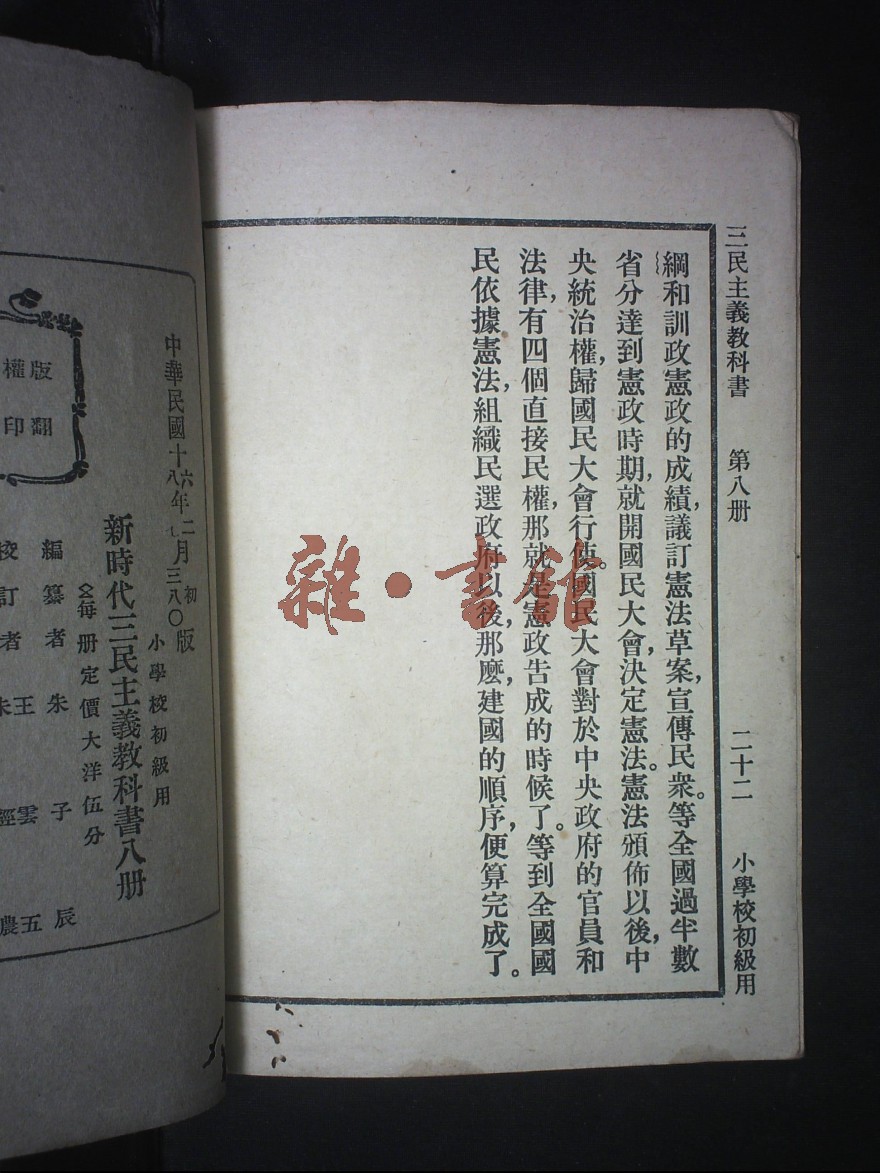 三民主義教科書 第八册 二十二 小學校初級用
綱和訓政憲政的成績，議訂憲法草案，宣傳民衆。等全國過半數
省分達到憲政時期，就開國民大會，決定憲法。憲法頒佈以後，中
央統治權，歸國民大會行使。國民大會對於中央政府的官員和
法律，有四個直接民權，那就是憲政告成的時候了。等到全國國
民依據憲法，組織民選政府以後，那麽，建國的順序，便算完成了。
雜·書館
中華民國十六年二月初版
小學校初級用
新時代三民主義教科書八册
每册定價大洋伍分
編纂者 朱子辰
王雲五
校訂者 朱經農
版權
翻印